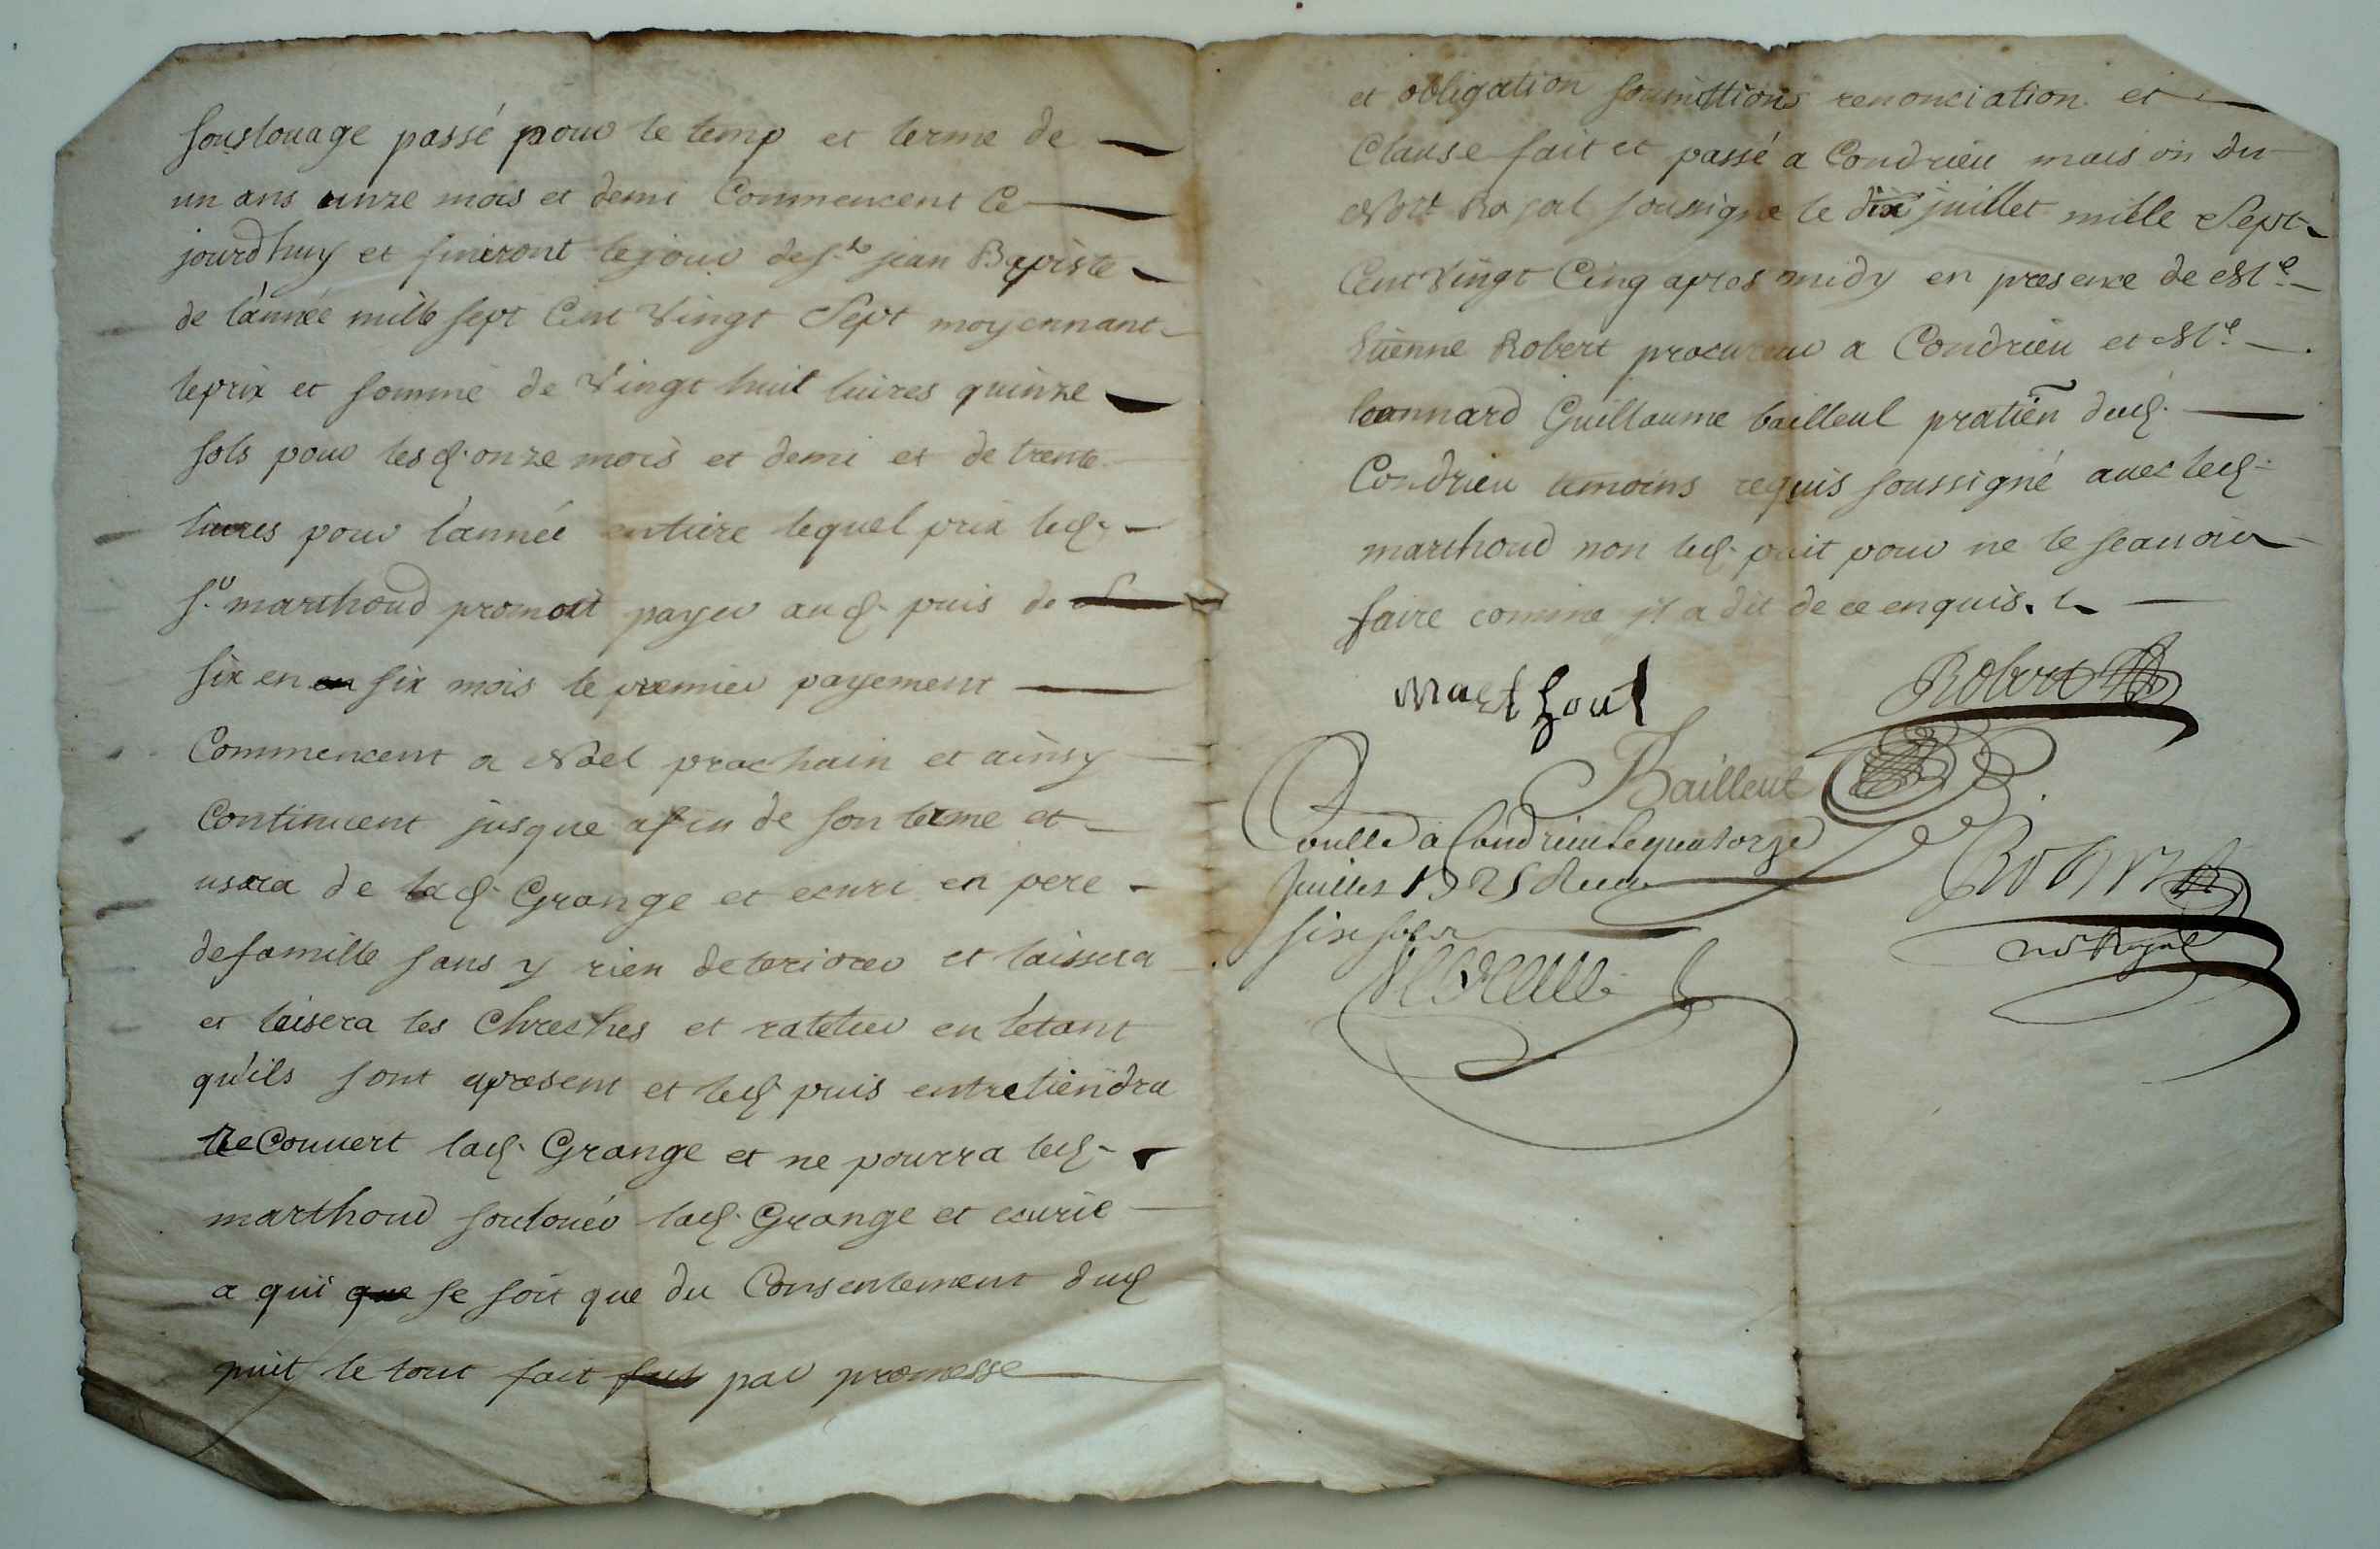 souslouage passé pour le temp et terme de
un ans unze mois et demi Commencent Ce
jourdhuy et finiront le jour de St jean Baptiste
de l'année mille sept Cent Vingt Sept moyennant
le prix et somme de Vingt huit livres quinze
sols pour lesd. onze mois et demi et de trente
livres pour l'année entiere lequel prix led.
Sr. marthoud promait payer aud. puis de
six en en six mois le premier payement
Commencent a Noel prochain et ainsy
Continuent jusque a fin de son terme et
usera de lad. Grange et ecuri en pere
de famille sans y rien deteriorer et laissera
et laisera les Chreshes et ratelier en l'etant
qu'ils sont apresent et led. puis entretiendra
le Couvert lad. Grange et ne pourra led.
marthoud soulouér lad. Grange et ecurie
a qui que se soit que du Consentement dud.
puit le tout fait fait par promesse
et obligation soumittions renonciation et
Clause fait et passé a Condrieu maison du
Nore. Royal soussigné le dix juillet mille Sept
Cent Vingt Cinq apres midy en presence de Me.
Etienne Robert procureur a Condrieu et Me.
leonnard Guillaume bailleul pratien dud.
Condrieu temoins requis soussigné avec led.
marthoud non led. puit pour ne le scauoir
faire comme jl a dit de ce enquis.
Marthout
Robert
Bailleul
Conlle a Condrieu le quatorze
Juillet 1725 Receu
six sols
not Royal